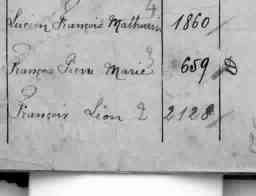 Lucien François Mathurin 1860
François Pierre Marie 659
François Léon 2128